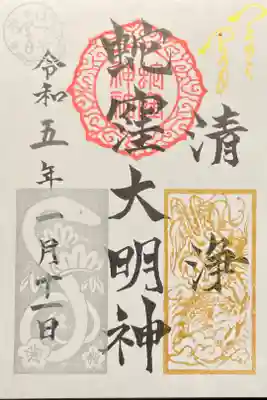 清
浄
蛇窪大明神
令和五年一月十一日